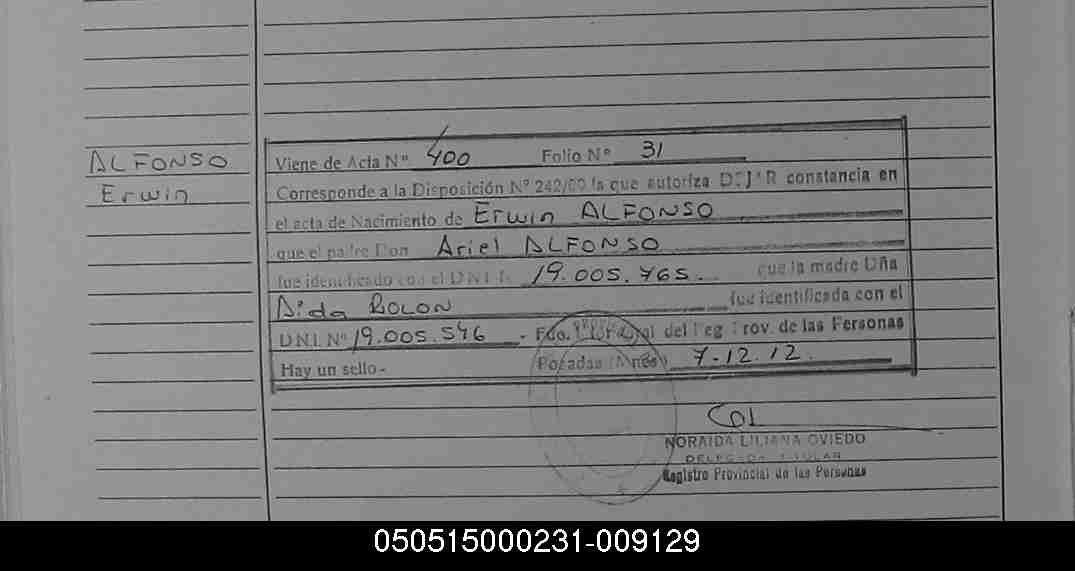 ALFONSO
Erwin
Viene de Acta Nº 400 Folio Nº 31
Corresponde a la Disposición Nº 242/00 la que autoriza DEJAR constancia en
el acta de Nacimiento de Erwin ALFONSO
que el padre Don Ariel ALFONSO
fue identificado con el D.N.I. 19.005.765. que la madre Dña
Aida BOLON fue identificada con el
D.N.I. Nº 19.005.546 - Fdo. del Reg Prov. de las Personas
Hay un sello - Posadas (Mnes) 7-12.12.
NORAIDA LILIANA OVIEDO
DELEGADA TITULAR
Registro Provincial de las Personas
050515000231-009129